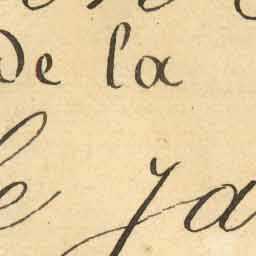 de la
le Ja